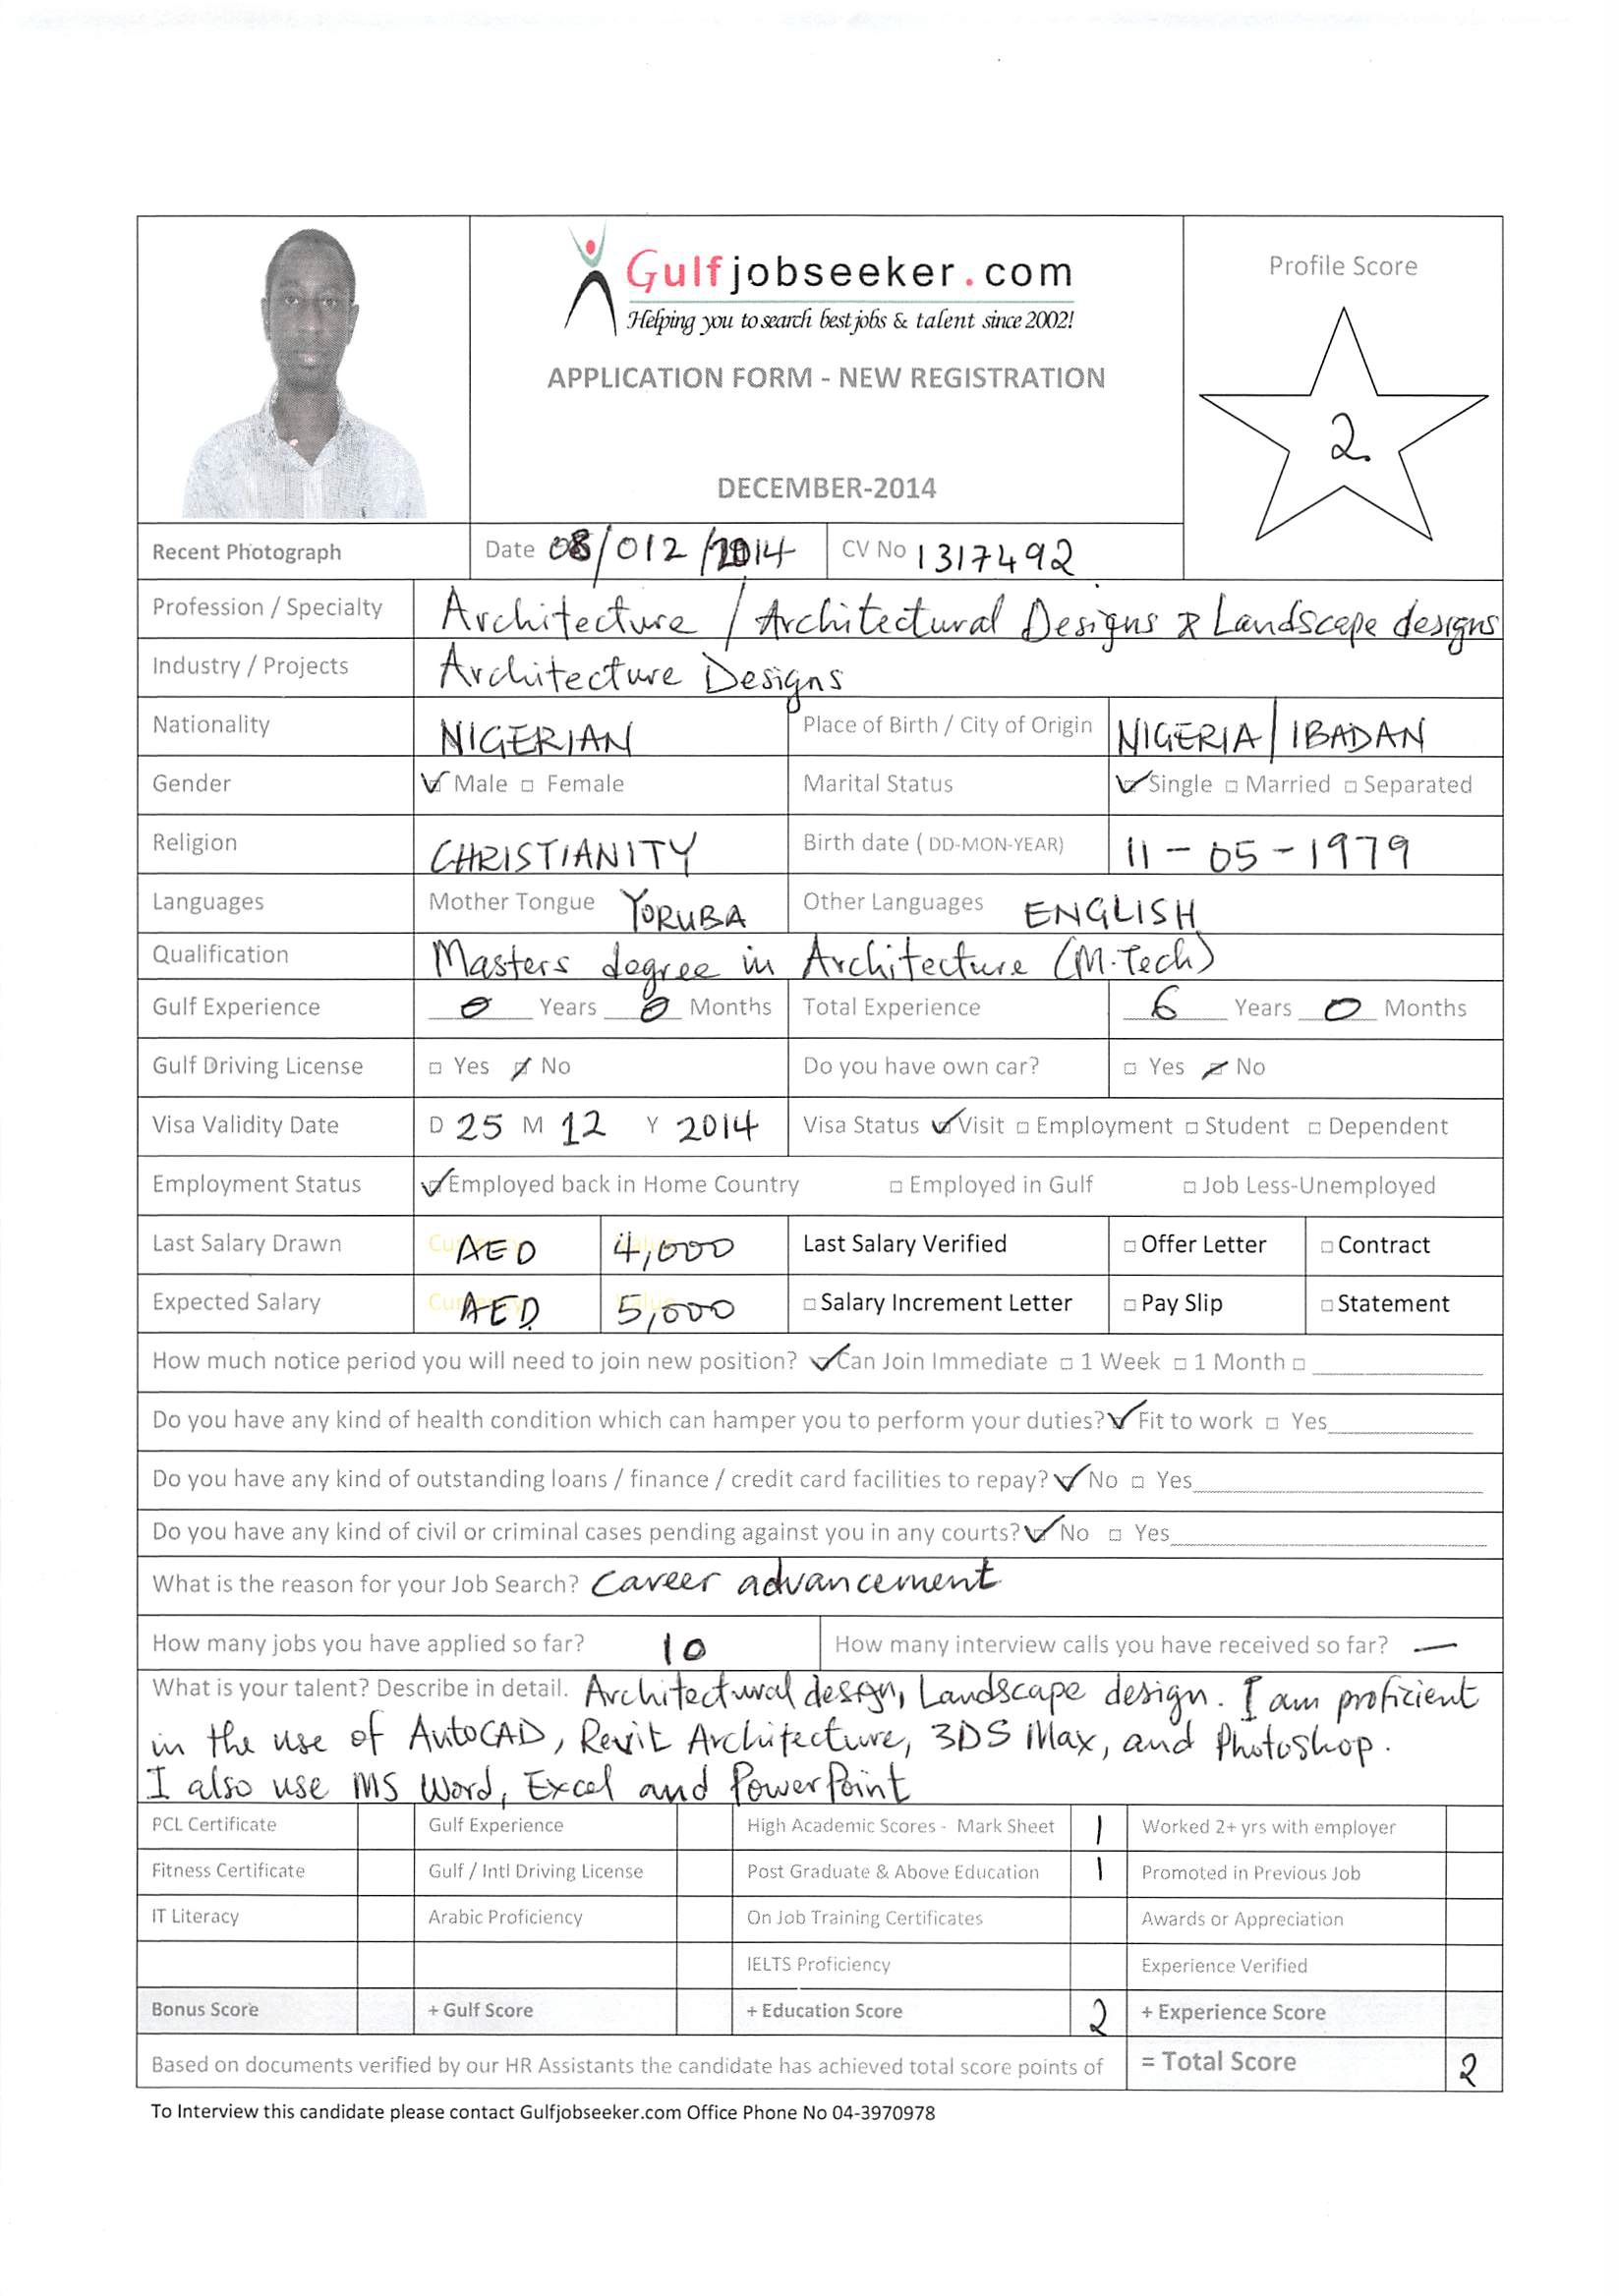 Gulfjobseeker.com
Helping you to search best jobs & talent since 2002!
APPLICATION FORM - NEW REGISTRATION
DECEMBER-2014
Profile Score
2
Recent Photograph Date 08/012/2014 CV No 1317492
Profession / Specialty Architecture / Architectural Designs & Landscape designs
Industry / Projects Architecture Designs
Nationality NIGERIAN Place of Birth / City of Origin NIGERIA / IBADAN
Gender ☑ Male □ Female Marital Status ☑ Single □ Married □ Separated
Religion CHRISTIANITY Birth date ( DD-MON-YEAR) 11 - 05 - 1979
Languages Mother Tongue YORUBA Other Languages ENGLISH
Qualification Masters degree in Architecture (M.Tech)
Gulf Experience 0 Years 0 Months Total Experience 6 Years 0 Months
Gulf Driving License □ Yes ☑ No Do you have own car? □ Yes ☑ No
Visa Validity Date D 25 M 12 Y 2014 Visa Status ☑ Visit □ Employment □ Student □ Dependent
Employment Status ☑ Employed back in Home Country □ Employed in Gulf □ Job Less-Unemployed
Last Salary Drawn AED 4,000 Last Salary Verified □ Offer Letter □ Contract
Expected Salary AED 5,000 □ Salary Increment Letter □ Pay Slip □ Statement
How much notice period you will need to join new position? ☑ Can Join Immediate □ 1 Week □ 1 Month □
Do you have any kind of health condition which can hamper you to perform your duties? ☑ Fit to work □ Yes
Do you have any kind of outstanding loans / finance / credit card facilities to repay? ☑ No □ Yes
Do you have any kind of civil or criminal cases pending against you in any courts? ☑ No □ Yes
What is the reason for your Job Search? Career advancement
How many jobs you have applied so far? 10 How many interview calls you have received so far? —
What is your talent? Describe in detail. Architectural design, Landscape design. I am proficient
in the use of AutoCAD, Revit Architecture, 3DS Max, and Photoshop.
I also use MS Word, Excel and PowerPoint
PCL Certificate Gulf Experience High Academic Scores - Mark Sheet 1 Worked 2+ yrs with employer
Fitness Certificate Gulf / Intl Driving License Post Graduate & Above Education 1 Promoted in Previous Job
IT Literacy Arabic Proficiency On Job Training Certificates Awards or Appreciation
IELTS Proficiency Experience Verified
Bonus Score + Gulf Score + Education Score 2 + Experience Score
Based on documents verified by our HR Assistants the candidate has achieved total score points of = Total Score 2
To Interview this candidate please contact Gulfjobseeker.com Office Phone No 04-3970978